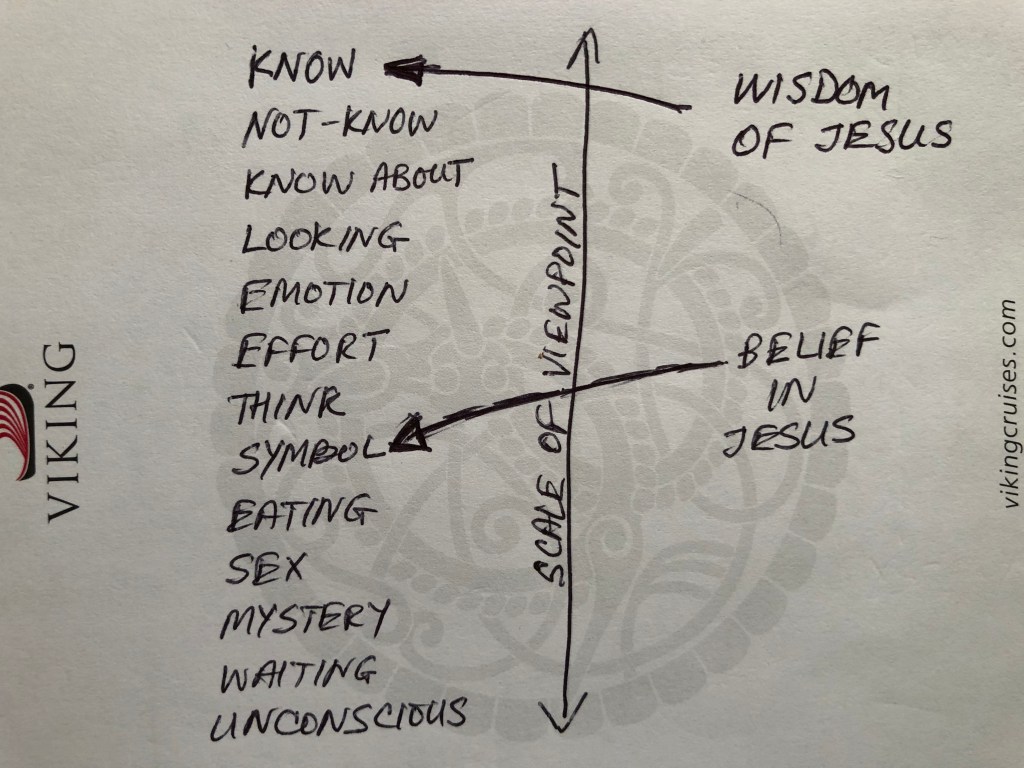 KNOW
NOT-KNOW
KNOW ABOUT
LOOKING
EMOTION
EFFORT
THINK
SYMBOL
EATING
SEX
MYSTERY
WAITING
UNCONSCIOUS
SCALE OF VIEWPOINT
WISDOM
OF JESUS
BELIEF
IN
JESUS
VIKING
vikingcruises.com